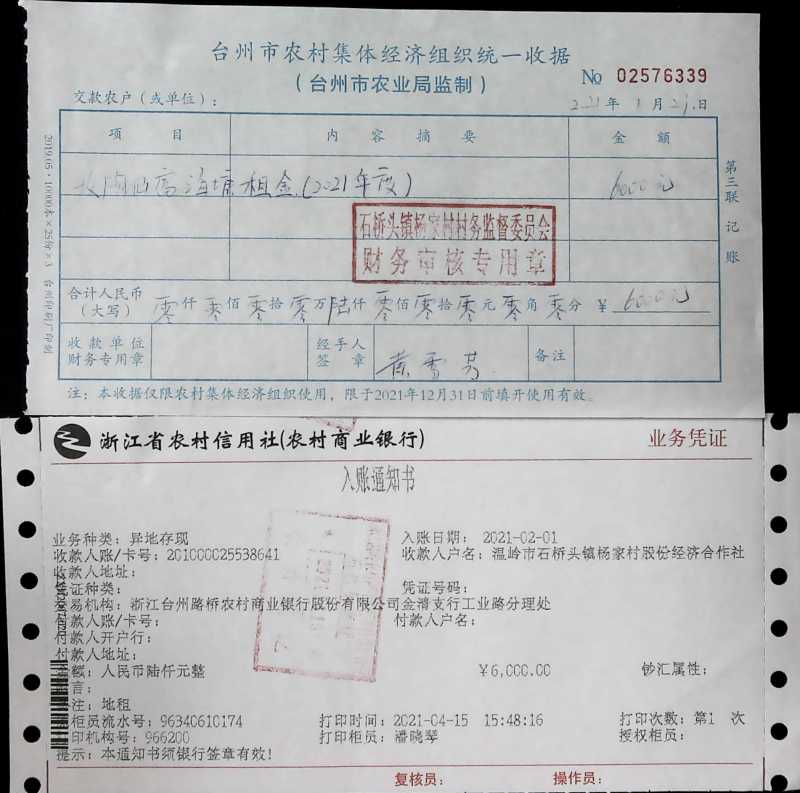 台州市农村集体经济组织统一收据
(台州市农业局监制)
No 02576339
交款农户(或单位):
2021年1月29日
项 目 内 容 摘 要 金 额
海塘租金(2021年度) 6000元
石桥头镇杨家村村务监督委员会
财务审核专用章
合计人民币(大写) 零仟零佰零拾零万陆仟零佰零拾零元零角零分 ¥ 6000元
收款单位财务专用章 经手人签章 黄雪芳 备注
注:本收据仅限农村集体经济组织使用,限于2021年12月31日前填开使用有效。
第三联 记账
2019.05·10000本×25份×3 台州印刷厂印制
浙江省农村信用社(农村商业银行) 业务凭证
入账通知书
业务种类: 异地存现 入账日期: 2021-02-01
收款人账/卡号: 201000025538641 收款人户名: 温岭市石桥头镇杨家村股份经济合作社
收款人地址:
凭证种类: 凭证号码:
交易机构: 浙江台州路桥农村商业银行股份有限公司金清支行工业路分理处
付款人账/卡号: 付款人户名:
付款人开户行:
付款人地址:
金额: 人民币陆仟元整 ¥6,000.00 钞汇属性:
附言:
备注: 地租
柜员流水号: 96340610174 打印时间: 2021-04-15 15:48:16 打印次数: 第1 次
打印机构号: 966200 打印柜员: 潘晓琴 授权柜员:
提示: 本通知书须银行签章有效!
复核员: 操作员: